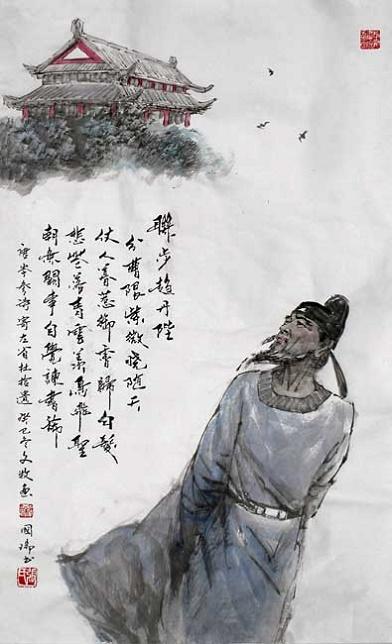 聯步趨丹陛
分曹限紫微曉隨天
仗入暮惹御香歸白髮
悲花落青雲羨鳥飛聖
朝無闕事自覺諫書稀
唐岑參詩寄左省杜拾遺癸巳冬文牧畫
國瑞書